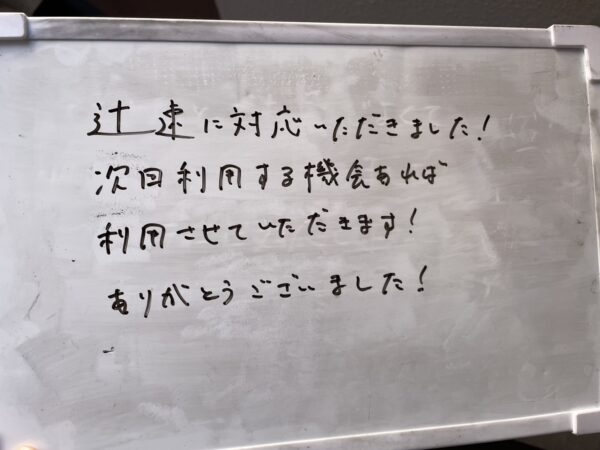 迅速に対応いただきました!
次回利用する機会あれば
利用させていただきます!
ありがとうございました!